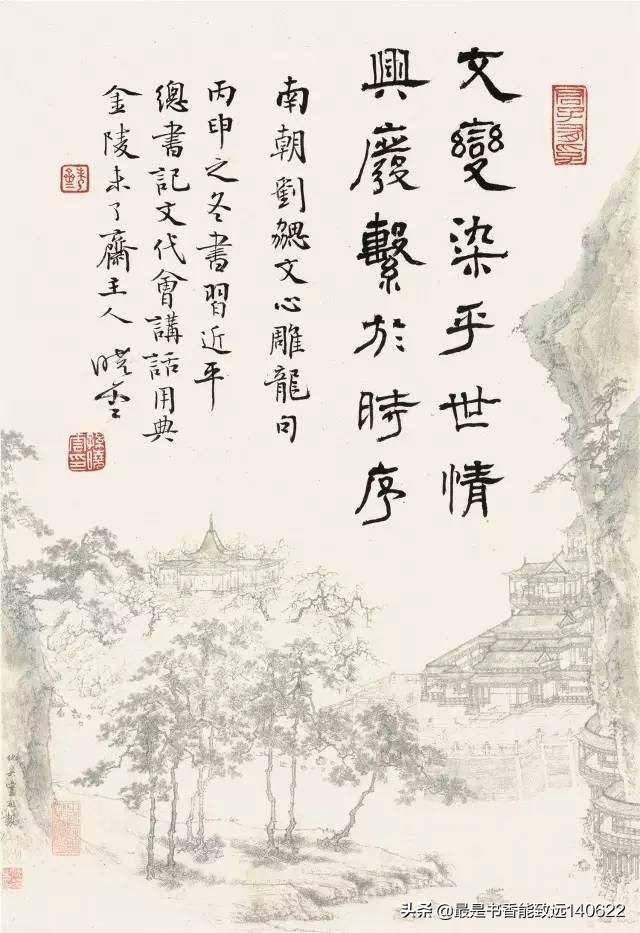 文變染乎世情
興廢繫於時序
南朝劉勰文心雕龍句
丙申之冬書習近平
總書記文代會講話用典
金陵未了齋主人 曉雲
孫曉雲印
头条 @最是书香能致远140622